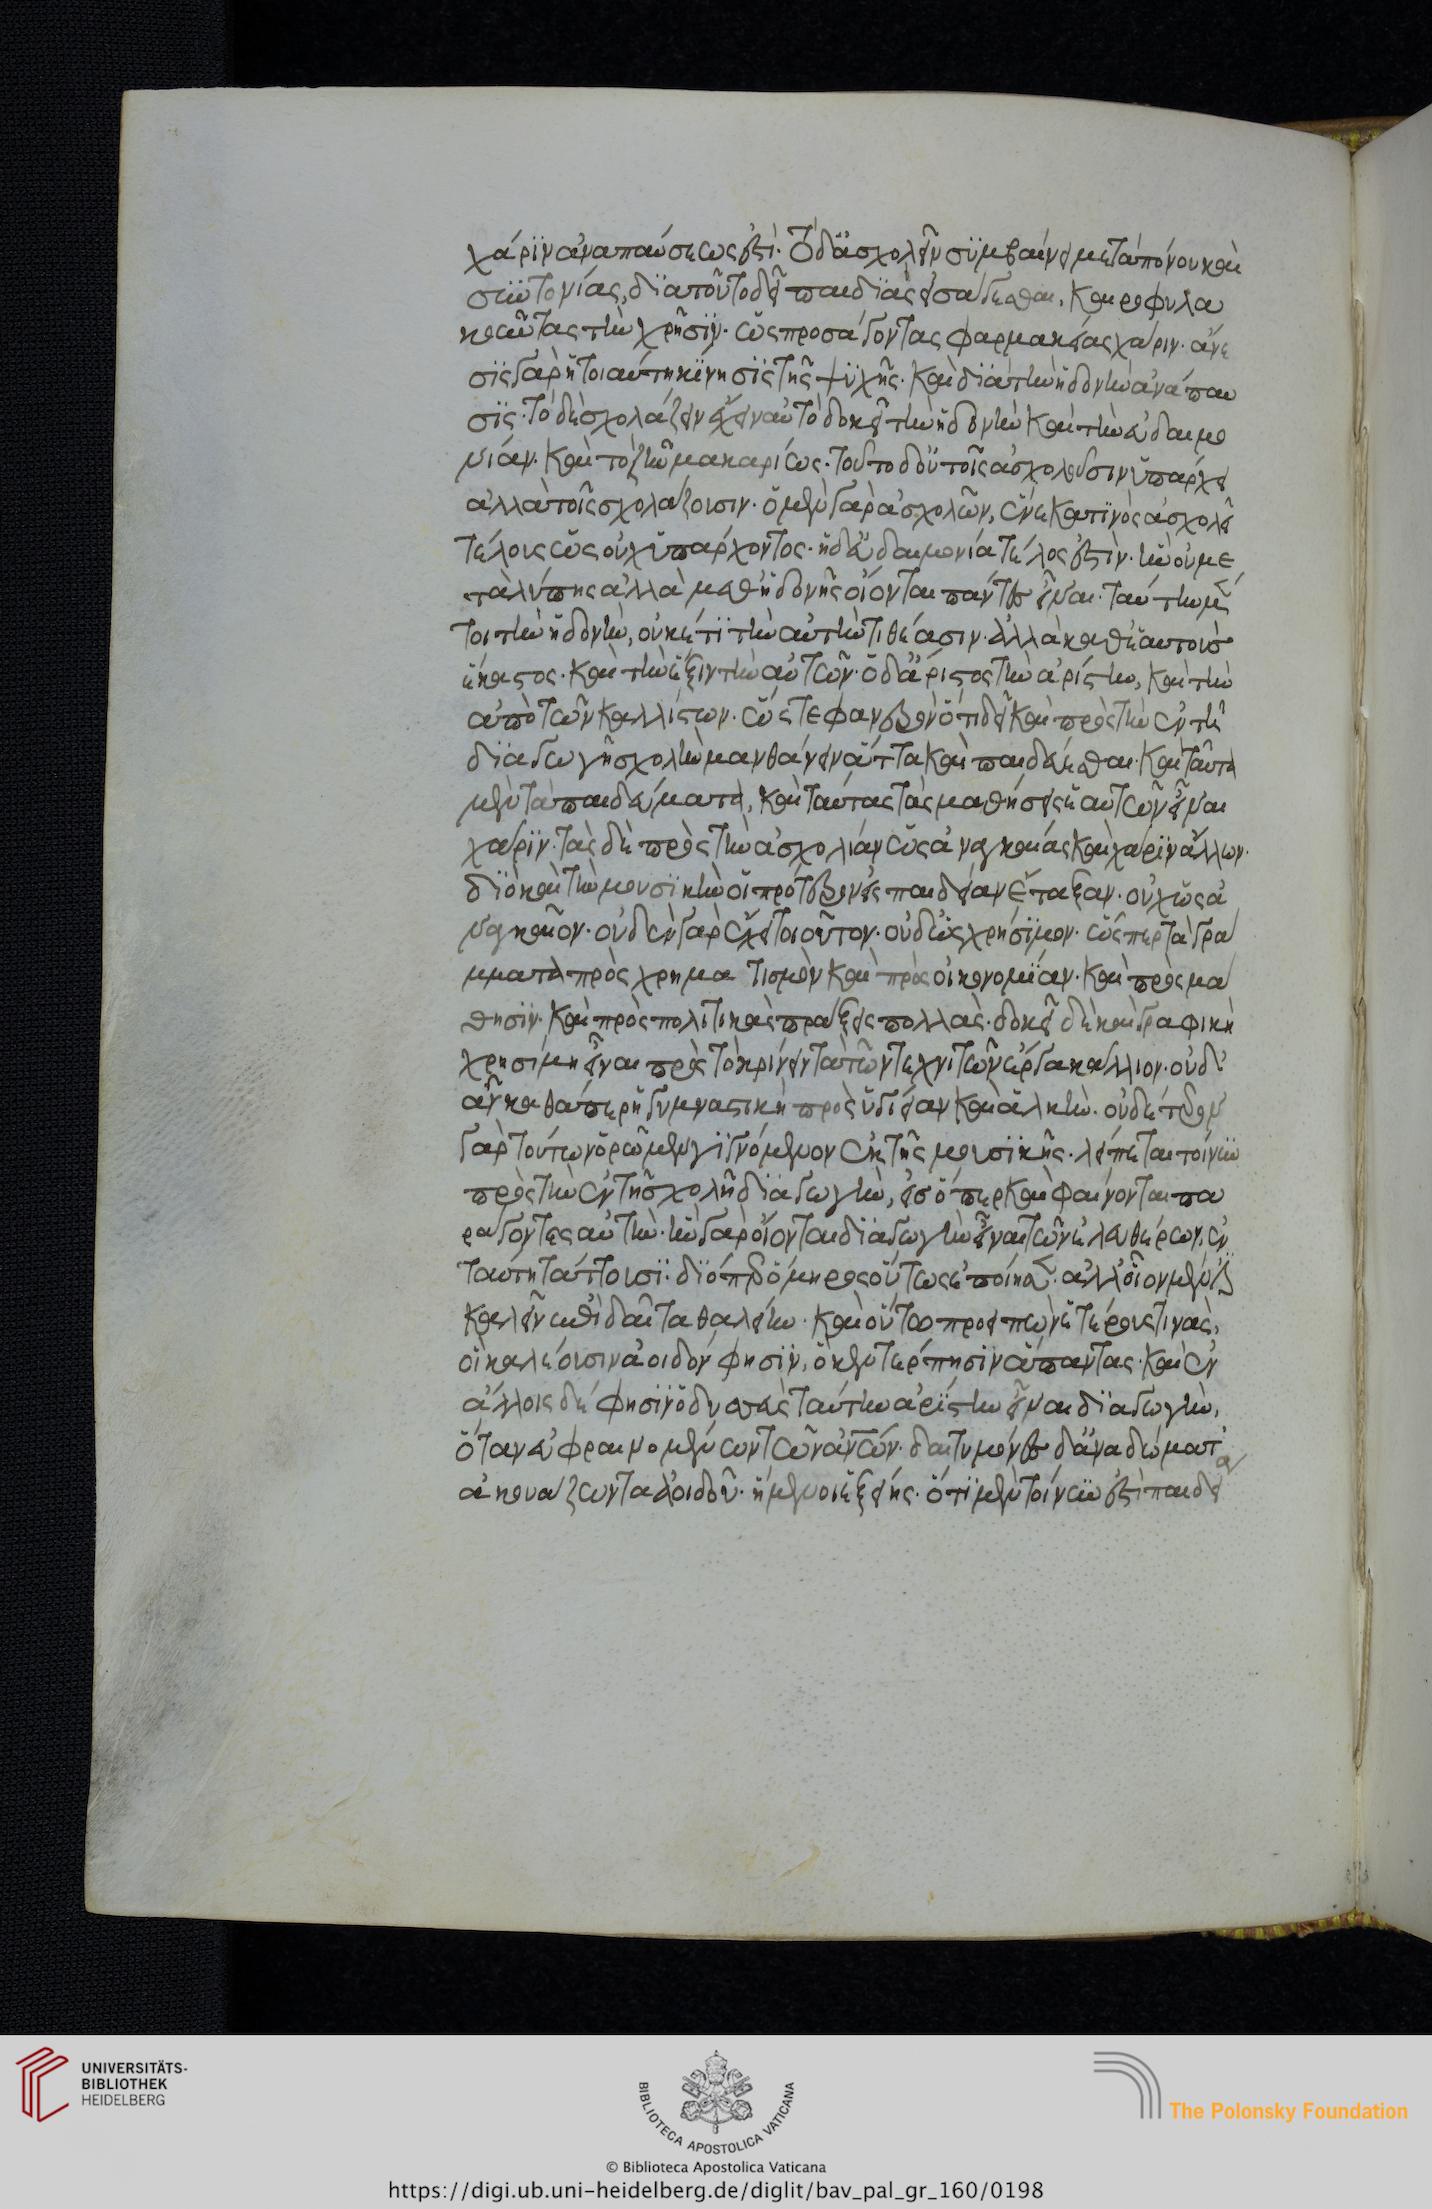 χάριν ἀναπαύσεως ἐστί. τὸ δ' ἀσχολεῖν συμβαίνει μετὰ πόνου καὶ
συντονίας, διὰ τοῦτο δεῖ παιδιὰς εἰσάγεσθαι, καιροφυλα
κοῦντας τὴν χρῆσιν. ὡς προσάγοντας φαρμακείας χάριν. ἄνε
σις γὰρ ἡ τοιαύτη κίνησις τῆς ψυχῆς. καὶ διὰ τὴν ἡδονὴν ἀνάπαυ
σις. τὸ δὲ σχολάζειν ἔχειν αὐτὸ δοκεῖ τὴν ἡδονὴν καὶ τὴν εὐδαιμο
νίαν. καὶ τὸ ζῆν μακαρίως. τοῦτο δ' οὐ τοῖς ἀσχολοῦσιν ὑπάρχει
ἀλλὰ τοῖς σχολάζουσιν. ὁ μὲν γὰρ ἀσχολῶν, ἕνεκά τινος ἀσχολεῖ
τέλους ὡς οὐχ ὑπάρχοντος. ἡ δ' εὐδαιμονία τέλος ἐστὶν. ἣν οὐ με
τὰ λύπης ἀλλὰ μεθ' ἡδονῆς οἴονται πάντες εἶναι. ταύτην μέν
τοι τὴν ἡδονὴν, οὐκέτι τὴν αὐτὴν τιθέασιν. ἀλλὰ καθ' ἑαυτοὺς
ἕκαστος. καὶ τὴν ἕξιν τὴν αὐτῶν. ὁ δ' ἄριστος τὴν ἀρίστην, καὶ τὴν
ἀπὸ τῶν καλλίστων. ὥστε φανερὸν ὅτι δεῖ καὶ πρὸς τὴν ἐν τῇ
διαγωγῇ σχολὴν μανθάνειν ἄττα καὶ παιδεύεσθαι. καὶ ταῦτα
μὲν τὰ παιδεύματα, καὶ ταύτας τὰς μαθήσεις ἑαυτῶν εἶναι
χάριν. τὰς δὲ πρὸς τὴν ἀσχολίαν ὡς ἀναγκαίας καὶ χάριν ἄλλων.
διὸ καὶ τὴν μουσικὴν οἱ πρότερον εἰς παιδείαν ἔταξαν. οὐχ ὡς ἀ
ναγκαῖον. οὐδὲν γὰρ ἔχει τοιοῦτον. οὐδ' ὡς χρήσιμον. ὥσπερ τὰ γρά
μματα πρὸς χρηματισμὸν καὶ πρὸς οἰκονομίαν. καὶ πρὸς μά
θησιν. καὶ πρὸς πολιτικὰς πράξεις πολλὰς. δοκεῖ δὲ καὶ γραφικὴ
χρησίμη εἶναι πρὸς τὸ κρίνειν τὰ τῶν τεχνιτῶν ἔργα κάλλιον. οὐδ'
αὖ καθάπερ ἡ γυμναστικὴ πρὸς ὑγίειαν καὶ ἀλκήν. οὐδέτερον
γὰρ τούτων ὁρῶμεν γιγνόμενον ἐκ τῆς μουσικῆς. λείπεται τοίνυν
πρὸς τὴν ἐν τῇ σχολῇ διαγωγὴν, εἰς ὅπερ καὶ φαίνονται πα
ράγοντες αὐτὴν. ἣν γὰρ οἴονται διαγωγὴν εἶναι τῶν ἐλευθέρων, ἐν
ταύτῃ τάττουσι. διόπερ ὅμηρος οὕτως ἐποίησεν. ἀλλ' οἷον μέν ἐστι
καλεῖν ἐπὶ δαῖτα θαλείην. καὶ οὕτω προειπὼν ἑτέρους τινὰς,
οἳ καλέουσιν ἀοιδόν φησιν, ὅ κεν τέρπησιν ἅπαντας. καὶ ἐν
ἄλλοις δέ φησιν ὀδυσσεὺς ταύτην ἀρίστην εἶναι διαγωγὴν,
ὅταν εὐφραινομένων τῶν ἀνθρώπων. δαιτυμόνες δ' ἀνὰ δώματα
ἀκουάζωνται ἀοιδοῦ. ἥμενοι ἑξείης. ὅτι μὲν τοίνυν ἐστὶ παιδεί
UNIVERSITÄTS-
BIBLIOTHEK
HEIDELBERG
BIBLIOTECA APOSTOLICA VATICANA
The Polonsky Foundation
© Biblioteca Apostolica Vaticana
https://digi.ub.uni-heidelberg.de/diglit/bav_pal_gr_160/0198